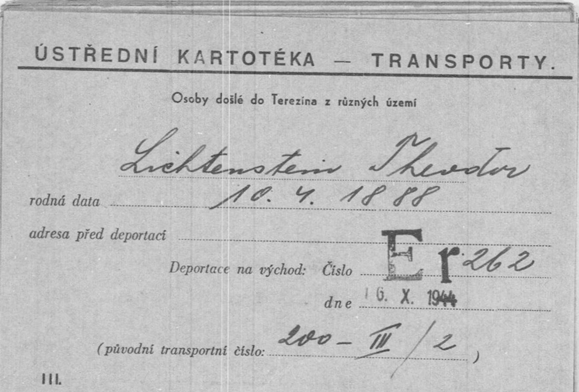 ÚSTŘEDNÍ KARTOTÉKA — TRANSPORTY.
Osoby došlé do Terezína z různých území
Lichtenstein Theodor
rodná data 10. 4. 1888
adresa před deportací
Deportace na východ: Číslo Er 262
dne 16. X. 1944
(původní transportní číslo: 200 - IV/2)
III.